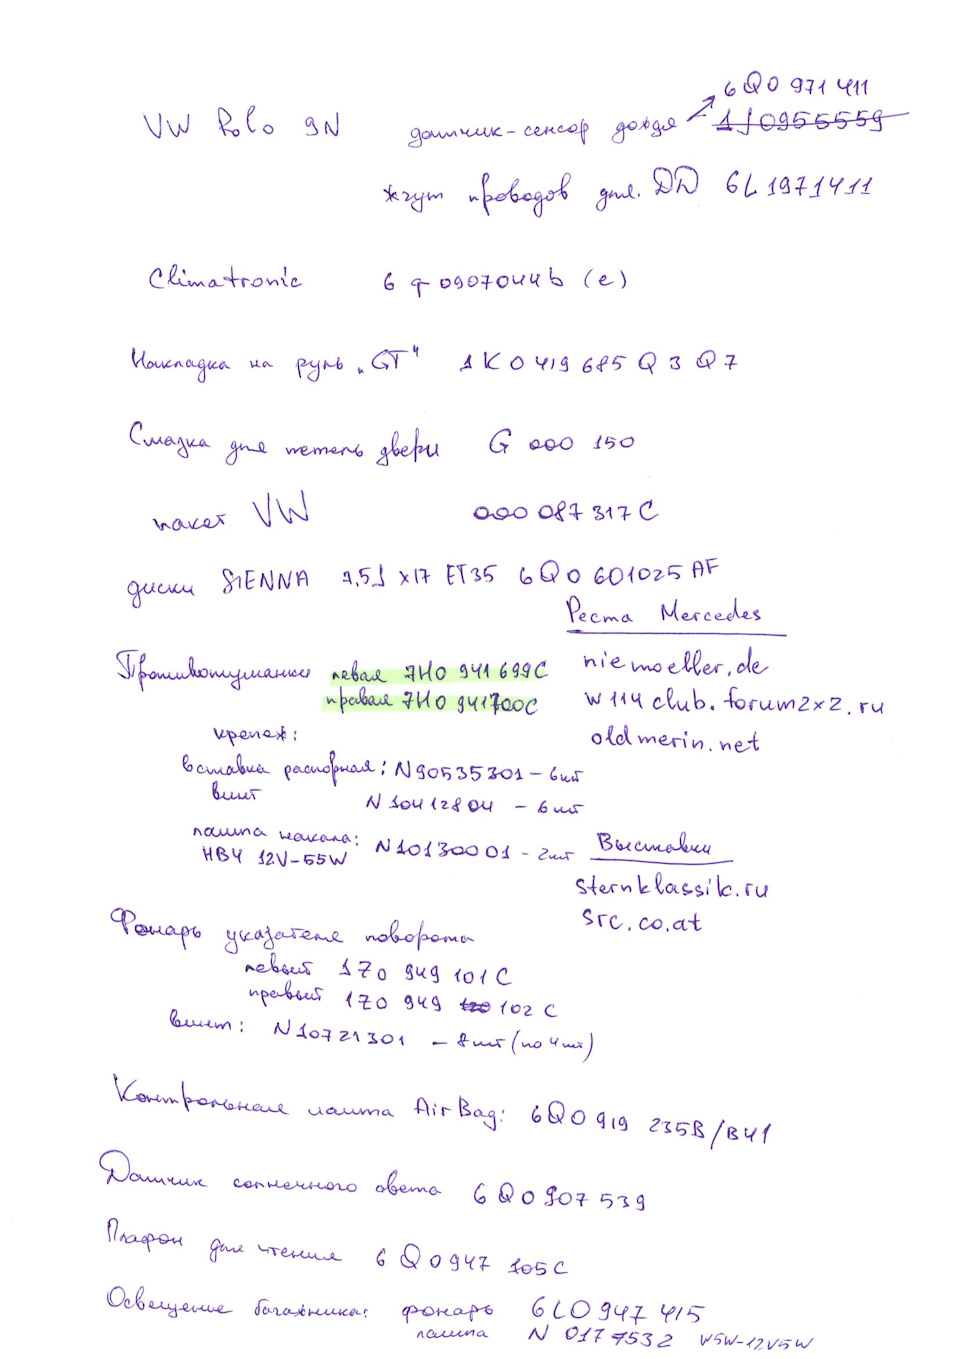 6Q0 971 411
VW Polo 9N датчик-сенсор дождя 1J0955559
жгут проводов для ДД 6L1971411
Climatronic 6q0907044b (e)
Накладка на руль „GT" 1K0 419 685 Q 3Q7
Смазка для петель двери G 000 150
пакет VW 000 087 317 C
диски SIENNA 7,5J x17 ET35 6Q0 601025 AF
Реста Mercedes
Противотуманки левая 7H0 941 699C
правая 7H0 941700C
niemoeller.de
w114club.forum2x2.ru
oldmerin.net
крепеж:
вставка распорная: N90535301 - 6шт
винт N 10412804 - 6 шт
лампа накала: N10130001 - 2шт
HB4 12V-55W
Выставки
sternklassik.ru
src.co.at
Фонарь указателя поворота
левый 1Z0 949 101 C
правый 1Z0 949 120 102 C
винт: N10721301 - 8шт (по 4шт)
Контрольная лампа AirBag: 6Q0 919 235B/B41
Датчик солнечного света 6Q0 907 539
Плафон для чтения 6Q0947 105C
Освещение багажника: фонарь 6L0947 415
лампа N 0177532 W5W-12V5W